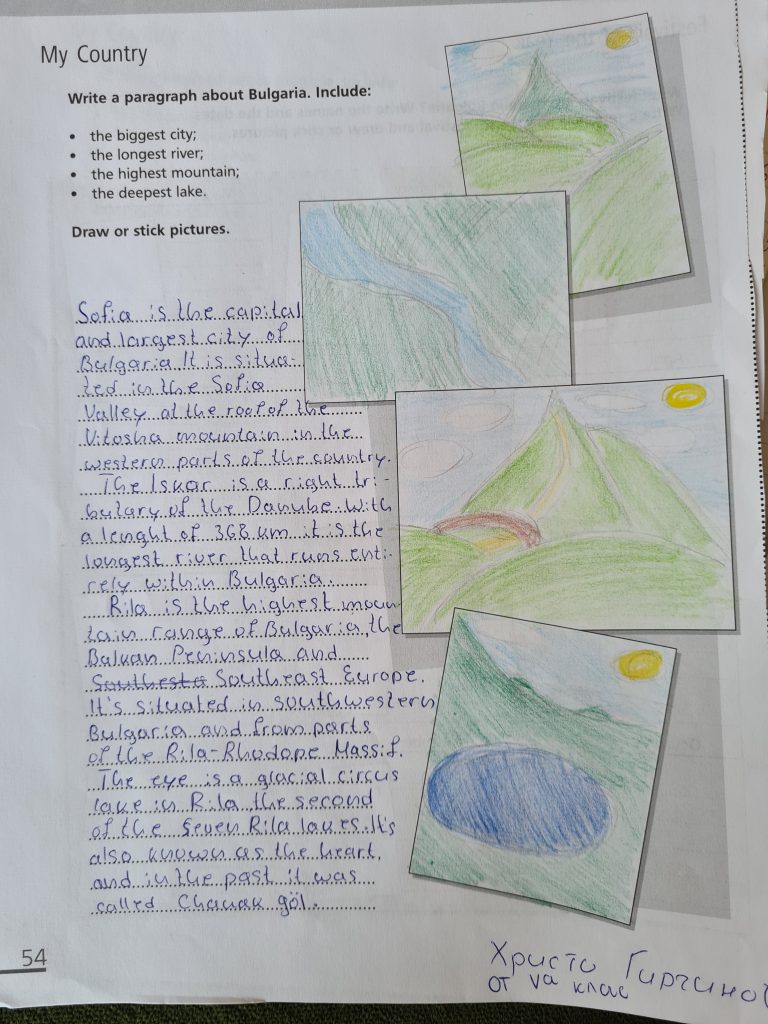 My Country
Write a paragraph about Bulgaria. Include:
• the biggest city;
• the longest river;
• the highest mountain;
• the deepest lake.
Draw or stick pictures.
Sofia is the capital
and largest city of
Bulgaria It is situa-
ted in the Sofia
Valley at the root of the
Vitosha mountain in the
western parts of the country.
The Iskar is a right tri-
butary of the Danube with
a lenght of 368 km it is the
longest river that runs enti-
rely within Bulgaria.
Rila is the highest moun-
tain range of Bulgaria, the
Balkan Peninsula and
Southeast Europe.
It's situated in southwestern
Bulgaria and from parts
of the Rila-Rhodope Massif.
The eye is a glacial circus
lake in Rila, the second
of the Seven Rila lakes. It's
also known as the heart,
and in the past it was
called Chanak göl.
54
Христо Гирчинов
от Va клас